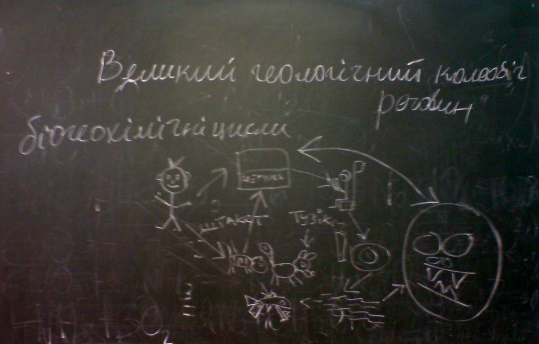 Великий геологічний колообіг
речовин
біогеохімічні цикли
шпакет Тузік